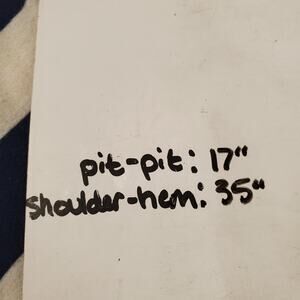 pit-pit: 17"
shoulder-hem: 35"